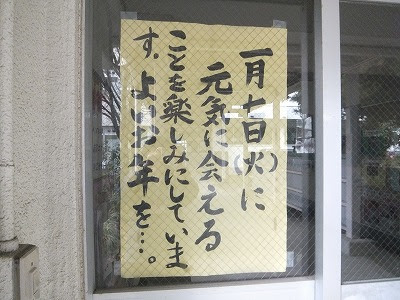 一月七日(火)に
元気に会える
ことを楽しみにしていま
す。よいお年を…。